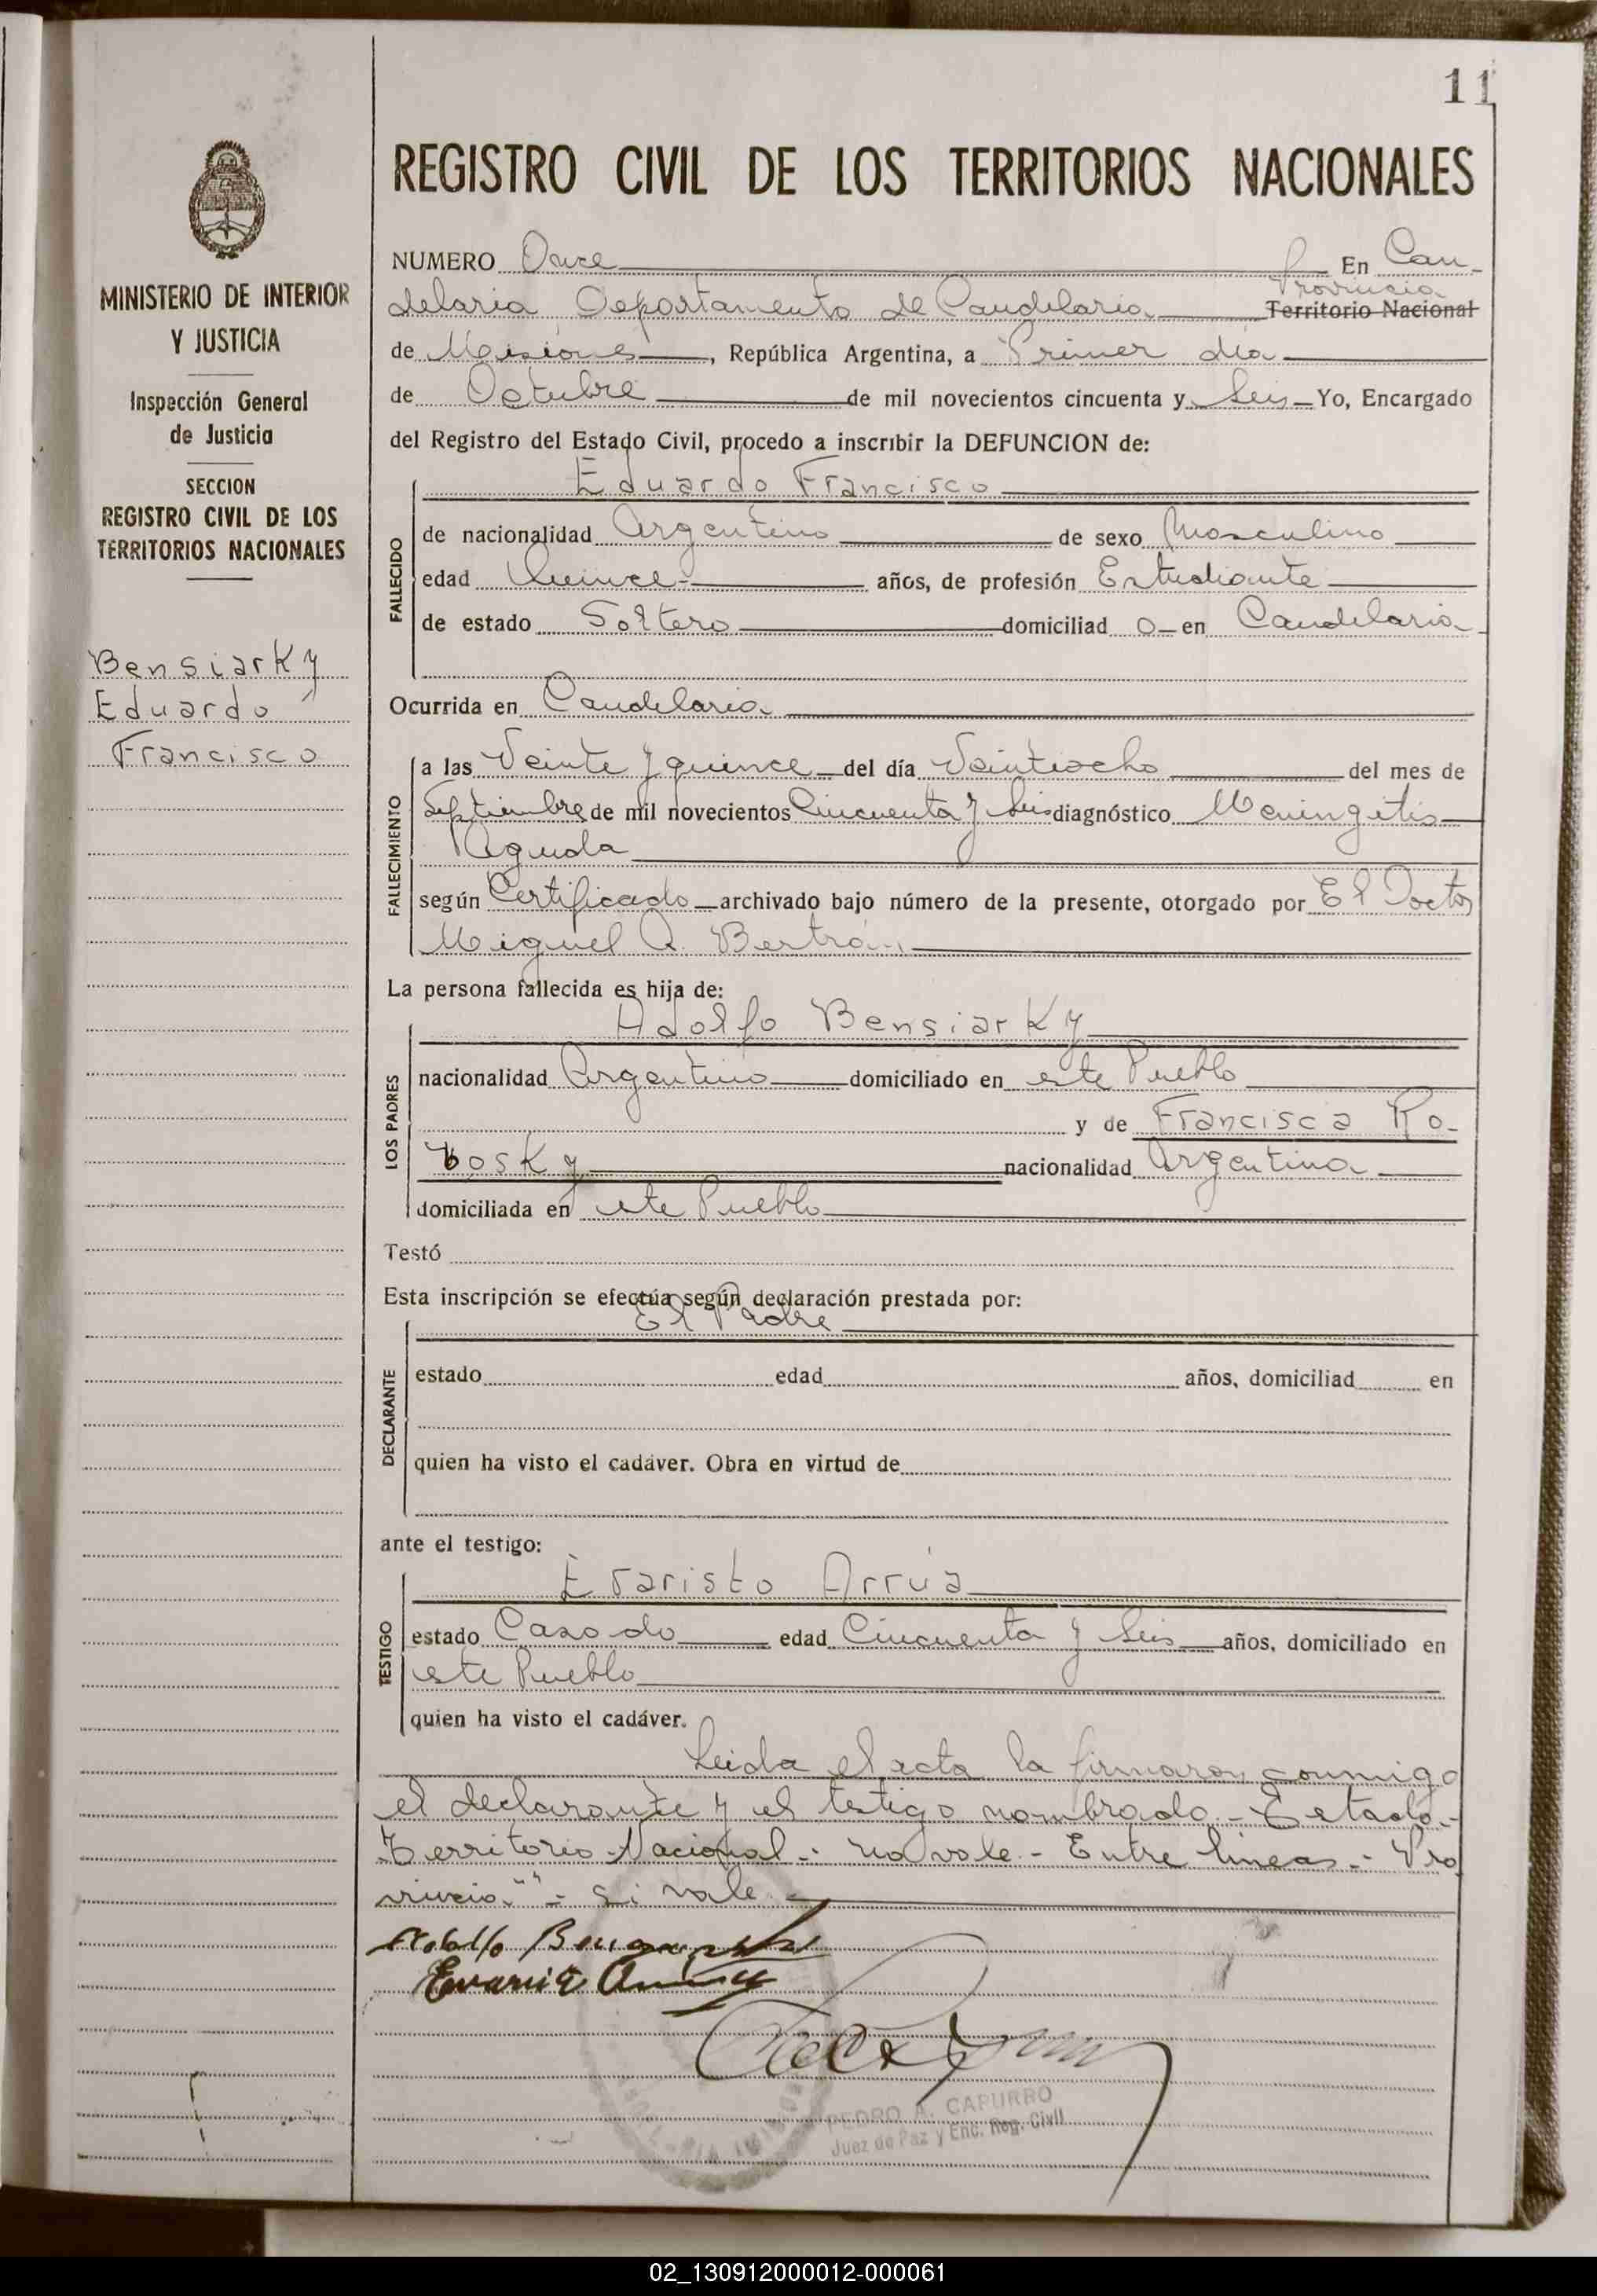 11
MINISTERIO DE INTERIOR
Y JUSTICIA
Inspección General
de Justicia
SECCION
REGISTRO CIVIL DE LOS
TERRITORIOS NACIONALES
Bensiarky
Eduardo
Francisco
REGISTRO CIVIL DE LOS TERRITORIOS NACIONALES
NUMERO Once En Can-
delaria Departamento de Candelaria Provincia Territorio Nacional
de Misiones, República Argentina, a Primer día
de Octubre de mil novecientos cincuenta y Seis Yo, Encargado
del Registro del Estado Civil, procedo a inscribir la DEFUNCION de:
Eduardo Francisco
FALLECIDO
de nacionalidad Argentino de sexo Masculino
edad Quince años, de profesión Estudiante
de estado Soltero domiciliad o en Candelaria
Ocurrida en Candelaria
FALLECIMIENTO
a las Veinte y quince del día Veintiocho del mes de
Septiembre de mil novecientos Cincuenta y Seis diagnóstico Meningitis
Aguda
según Certificado archivado bajo número de la presente, otorgado por El Doctor
Miguel A. Bertrán
La persona fallecida es hija de:
LOS PADRES
Adolfo Bensiarky
nacionalidad Argentino domiciliado en este Pueblo
y de Francisca Ro-
bosky nacionalidad Argentina
domiciliada en este Pueblo
Testó
Esta inscripción se efectúa según declaración prestada por:
DECLARANTE
El Padre
estado edad años, domiciliad en
quien ha visto el cadáver. Obra en virtud de
ante el testigo:
TESTIGO
Evaristo Arrúa
estado Casado edad Cincuenta y Seis años, domiciliado en
este Pueblo
quien ha visto el cadáver.
Leida el acta la firmaron conmigo
el declarante y el testigo nombrado.- Testado.-
Territorio Nacional.- no vale.- Entre lineas.- Pro
vincia.- "" - Si vale.-
PEDRO A. CAPURRO
Juez de Paz y Enc. Reg. Civil
02_130912000012-000061